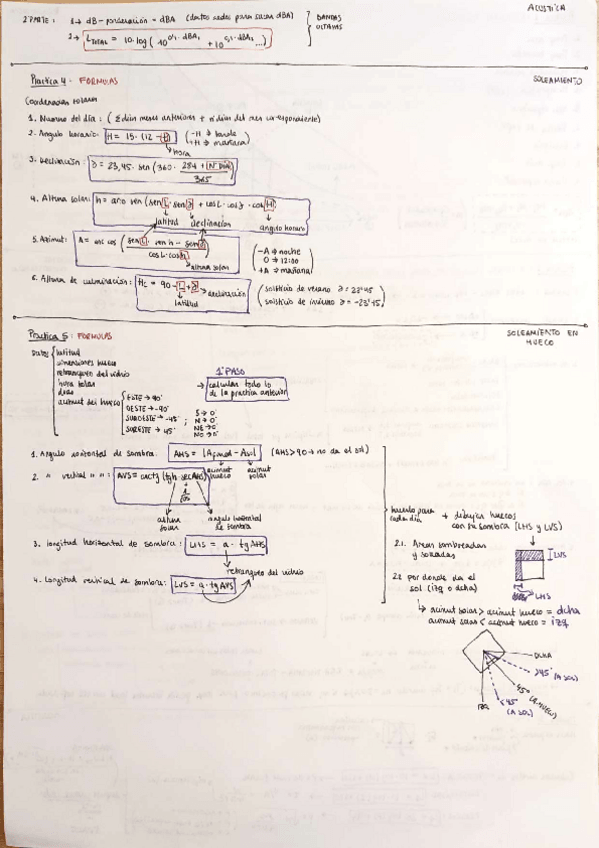 ACUSTICA
2ªPARTE: 1→ dB - ponderación = dBA (datos dados para sacar dBA)
2→ LTOTAL = 10·log (10^0,1·dBA1 + 10^0,1·dBA2 ...)
BANDAS OCTAVAS
Practica 4 - FORMULAS
SOLEAMIENTO
Coordenadas solares
1. Numero del dia: (Σ dias meses anteriores + nº dias del mes correspondiente)
2. Angulo horario: H = 15·(12 - t) (-H ⇒ tarde
+H ⇒ mañana)
hora
3. Declinación: ∂ = 23,45· sen (360· 284 + Nº DIA / 365)
4. Altura solar: h = arc sen (sen L· sen ∂ + cos L· cos ∂· cos H)
latitud declinación angulo horario
5. Azimut: A = arc cos (sen L· sen h - sen ∂ / cos L· cos h)
altura solar
(-A ⇒ noche
0 ⇒ 12:00
+A ⇒ mañana)
6. Altura de culminación: Hc = 90 - L + ∂ → declinación
latitud
(solsticio de verano ∂ = 23'45
solsticio de invierno ∂ = -23'45)
Practica 5: FORMULAS
SOLEAMIENTO EN HUECO
Datos latitud
dimensiones hueco
retranqueo del vidrio
hora solar
dias
azimut del hueco
ESTE → 90º
OESTE → -90º
SUROESTE → -45º
SURESTE → 45º
S → 0º
N → 0º
NE → 0º
NO → 0º
1º PASO
→ calcular todo lo de la practica anterior
1. Angulo horizontal de sombra: AHS = |Ahueco - Asol| (AHS > 90 → no da el sol)
azimut hueco azimut solar
2. " vertical " ": AVS = arctg (tg h· sec AHS)
1/cos
altura solar
angulo horizontal de sombra
3. longitud horizontal de sombra: LHS = a · tg AHS
retranqueo del vidrio
4. Longitud vertical de sombra: LVS = a · tg AVS
hacerlo para cada dia
+ dibujar huecos con su sombra (LHS y LVS)
2.1. Areas sombreadas y soleadas
LVS
LHS
2.2 por donde da el sol (izq o dcha)
↳ azimut solar > azimut hueco = dcha
azimut solar < azimut hueco = izq
DCHA
>45º (A SOL)
45º (A HUECO)
<45º (A SOL)
IZQ